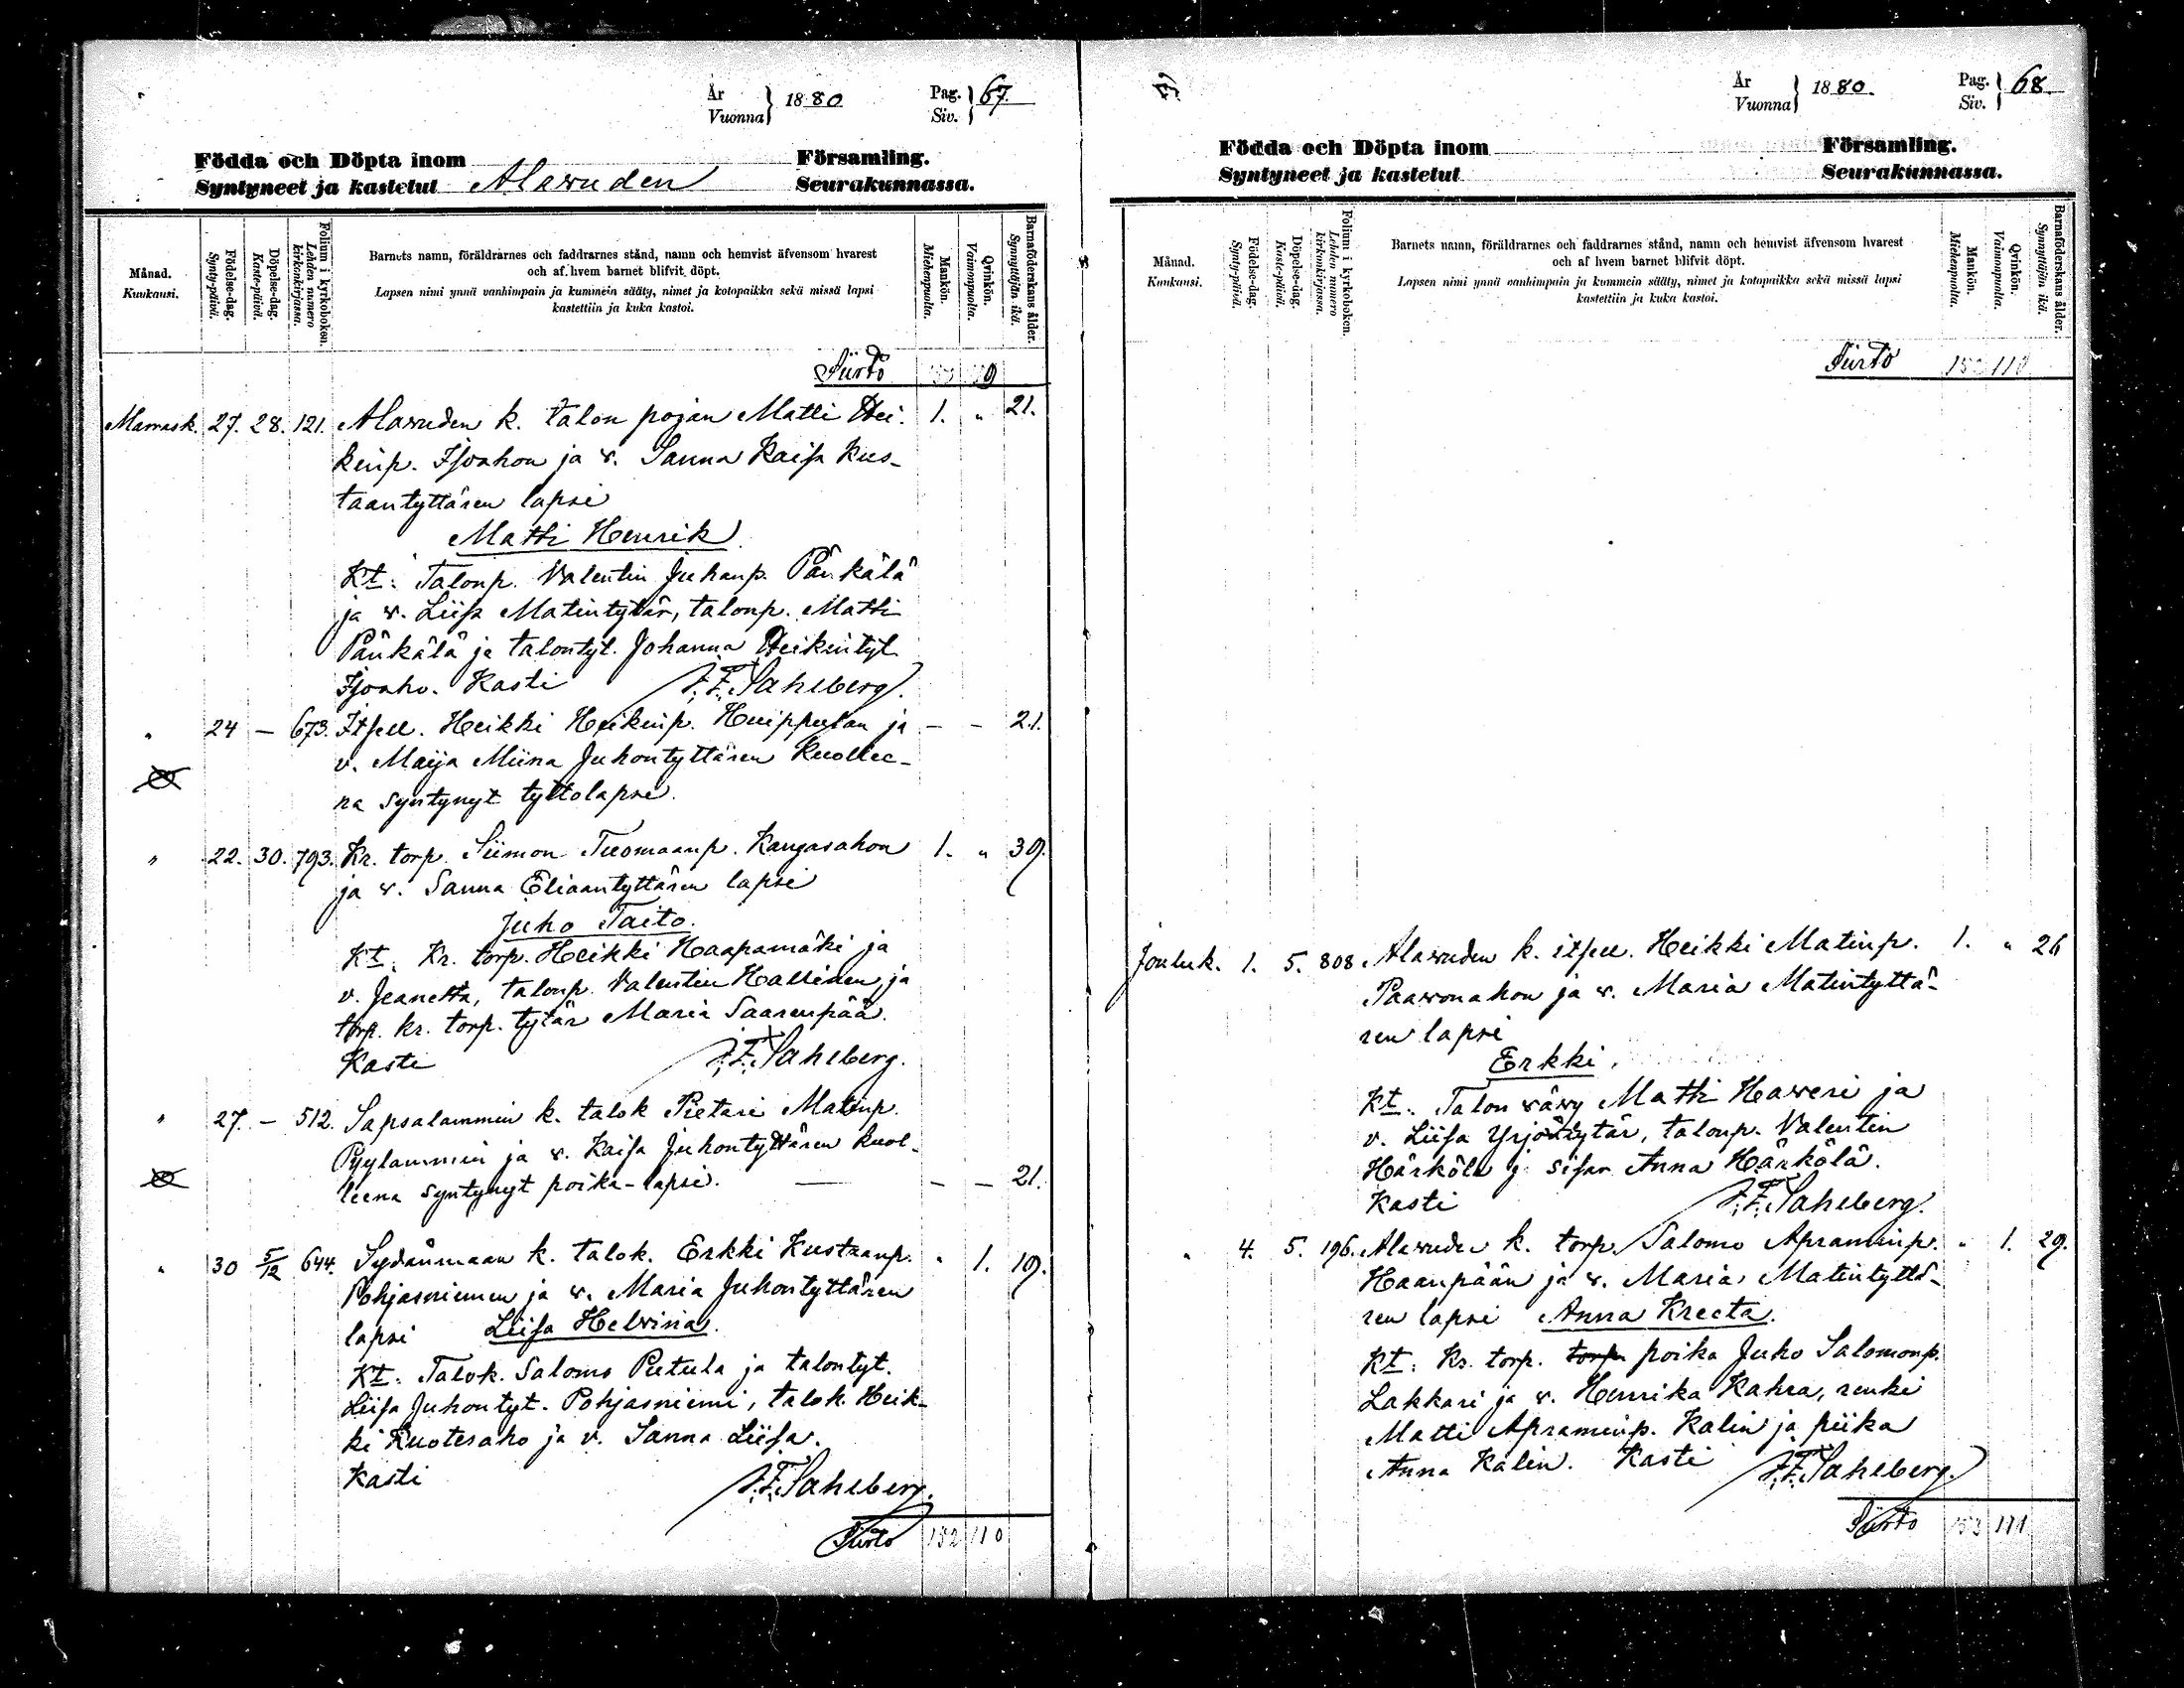 År
Vuonna } 1880 Pag.
Siv. } 67.
Födda och Döpta inom Församling.
Syntyneet ja kastetut Alavuden Seurakunnassa.
Månad.
Kuukausi.
Födelse-dag.
Synty-päivä.
Döpelse-dag.
Kaste-päivä.
Folium i kyrkoboken.
Lehden numero
kirkonkirjassa.
Barnets namn, föräldrarnes och faddrarnes stånd, namn och hemvist äfvensom hvarest
och af hvem barnet blifvit döpt.
Lapsen nimi ynnä vanhimpain ja kummein sääty, nimet ja kotopaikka sekä missä lapsi
kastettiin ja kuka kastoi.
Mankön.
Miehenpuolta.
Qvinkön.
Vaimonpuolta.
Barnaföderskans ålder.
Synnyttäjän ikä.
Siirto
Marrask. 27. 28. 121. Alavuden k. talon pojan Matti Hei- 1. " 21.
kinp. Isoahon ja v. Sanna Kaisa Kus-
taantyttären lapsi
Matti Henrik
Kt: Talonp. Valentin Juhanp. Pänkälä
ja v. Liisa Matintytär, talonp. Matti
Pänkälä ja talontyt. Johanna Heikintyt.
Isoaho. Kasti J. F. Sahlberg.
" 24 — 673. Itsell. Heikki Heikinp. Huippulan ja — — 21.
v. Maija Miina Juhontyttären kuollee-
na syntynyt tyttölapsi.
" 22. 30. 793. Kr. torp. Siimon Tuomaanp. Kangasahon 1. " 39.
ja v. Sanna Eliaantyttären lapsi
Juho Taito.
Kt: Kr. torp. Heikki Haapamäki ja
v. Jeanetta, talonp. Valentin Hallinen, ja
torp. kr. torp. tytär Maria Saarenpää.
Kasti J. F. Sahlberg.
" 27. — 512. Sapsalammin k. talok Pietari Matinp.
Pyylammin ja v. Kaisa Juhontyttären kuol-
leena syntynyt poika-lapsi. — — — 21.
" 30 5/12 644. Sydänmaan k. talok. Erkki Kustaanp. " 1. 19.
Pohjasniemen ja v. Maria Juhontyttären
lapsi Liisa Helviina.
Kt: Talok. Salomo Putula ja talontyt.
Liisa Juhontyt. Pohjasniemi, talok. Heik-
ki Kuotesaho ja v. Sanna Liisa.
Kasti J. F. Sahlberg.
Siirto 152 110
År
Vuonna } 1880. Pag.
Siv. } 68.
Födda och Döpta inom Församling.
Syntyneet ja kastetut Seurakunnassa.
Månad.
Kuukausi.
Födelse-dag.
Synty-päivä.
Döpelse-dag.
Kaste-päivä.
Folium i kyrkoboken.
Lehden numero
kirkonkirjassa.
Barnets namn, föräldrarnes och faddrarnes stånd, namn och hemvist äfvensom hvarest
och af hvem barnet blifvit döpt.
Lapsen nimi ynnä vanhimpain ja kummein sääty, nimet ja kotopaikka sekä missä lapsi
kastettiin ja kuka kastoi.
Mankön.
Miehenpuolta.
Qvinkön.
Vaimonpuolta.
Barnaföderskans ålder.
Synnyttäjän ikä.
Siirto 152 110
Jouluk. 1. 5. 808. Alavuden k. itsell. Heikki Matinp. 1. " 26
Paavonahon ja v. Maria Matintyttä-
ren lapsi
Erkki.
Kt: Talon vävy Matti Haveri ja
v. Liisa Yrjöntytär, talonp. Valentin
Härkölä j. sisar Anna Härkölä.
Kasti J. F. Sahlberg.
" 4. 5. 196. Alavuden k. torp. Salomo Apraminp. " 1. 29.
Haanpään ja v. Maria Matintyttä-
ren lapsi Anna Kreeta.
Kt: Kr. torp. torp. poika Juho Salomonp.
Lakkari ja v. Henrika Kahra, renki
Matti Apraminp. Kalin ja piika
Anna Kalin. Kasti J. F. Sahlberg.
Siirto 153 111